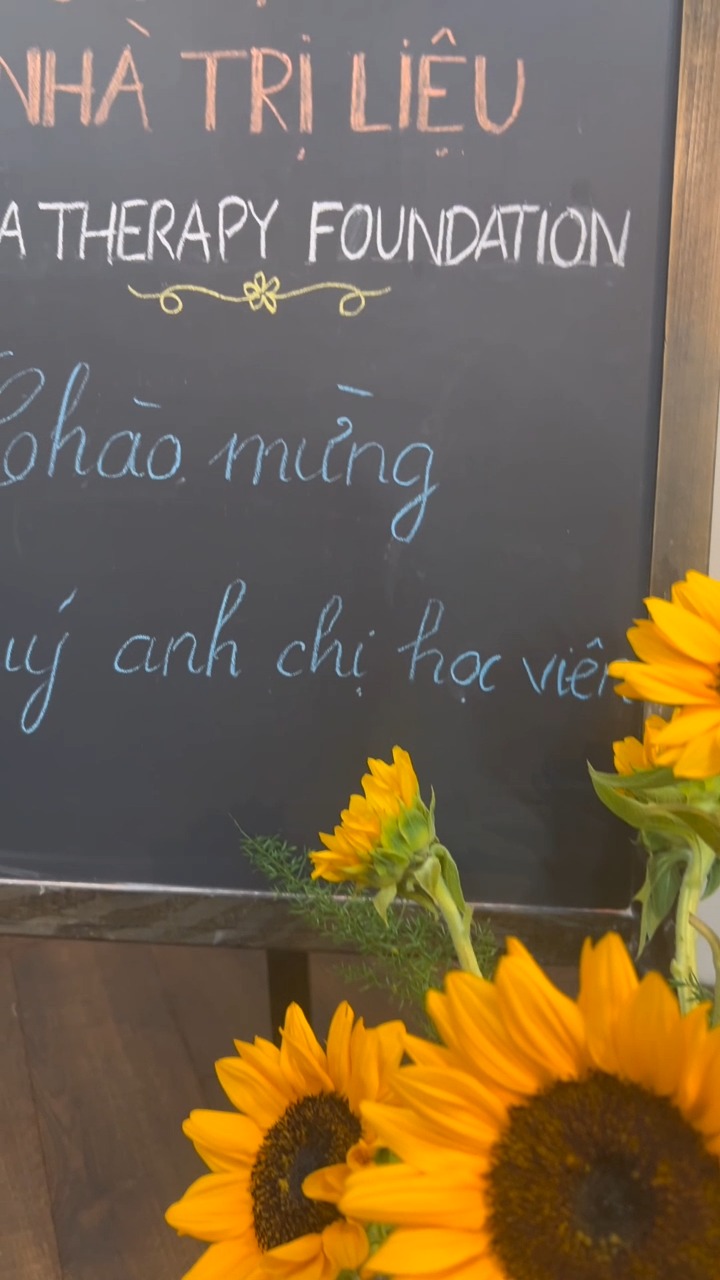 NHÀ TRỊ LIỆU
A THERAPY FOUNDATION
Chào mừng
anh chị học viên